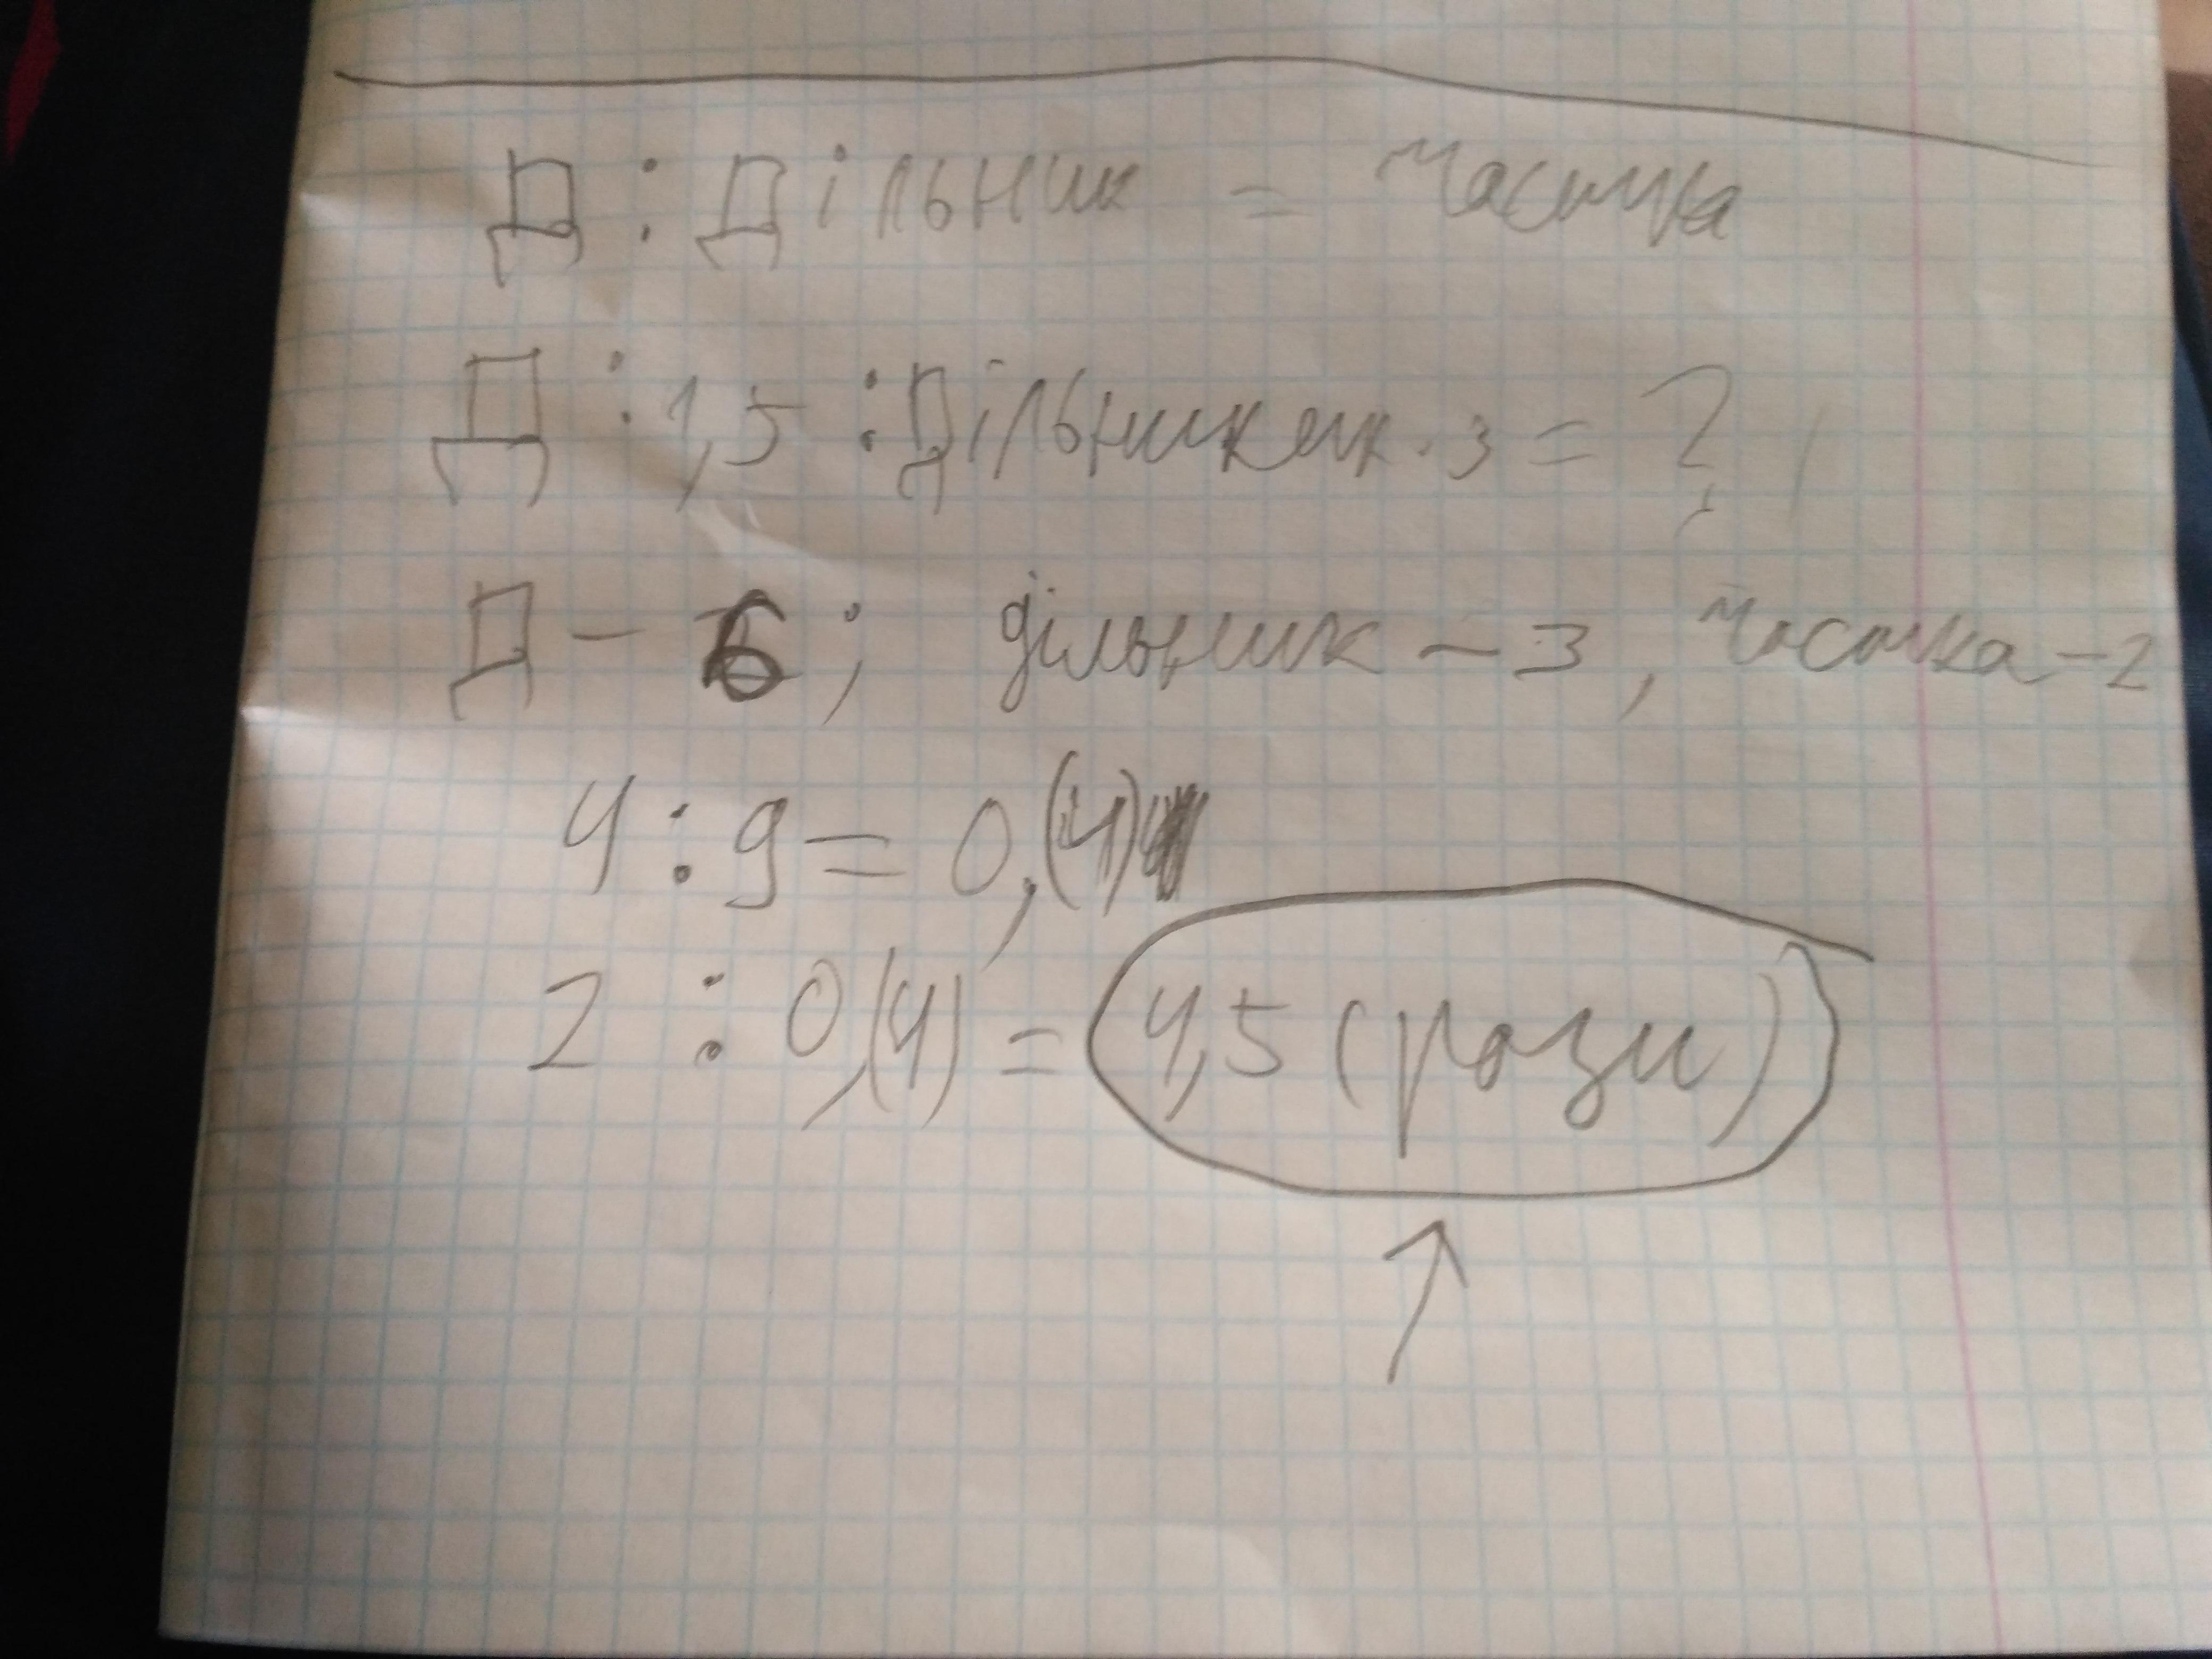 Д : Дільник = частка
Д : 1,5 : Дільник · 3 = ?
Д - 6; дільник - 3, частка - 2
4 : 9 = 0,(4)
2 : 0,(4) = 4,5 (рази)